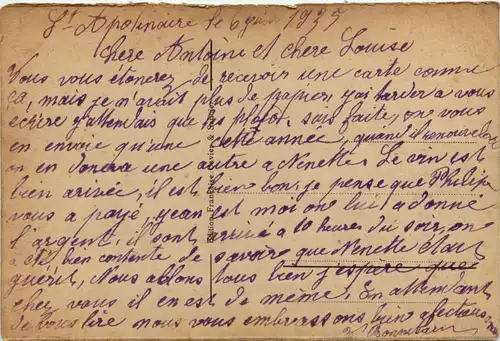 St Apolinaire le 6 juin 1935
chere Antoine et chere Louise
Vous vous étonerez de recevoir une carte comme
ça, mais je m'avait plus de papier, j'ai tarder a vous
ecrire j'attendais que les photos sois faite, on vous
en envoie qu'une cette année, quand il renouvel
on en donnera une autre a Nenette. Le vin est
bien arrivée, il est bien bon, je pense que Philip
vous a payé, Jean est moi on lui a donné
l'argent, il sont arrivé a 10 heures du soir, on
a été bien contente de savoire que Nenette était
guérit, Nous allons tous bien j'espère que
chez vous il en est de même. En attendant
de vous lire nous vous embrassons bien afectueus
Edition Française